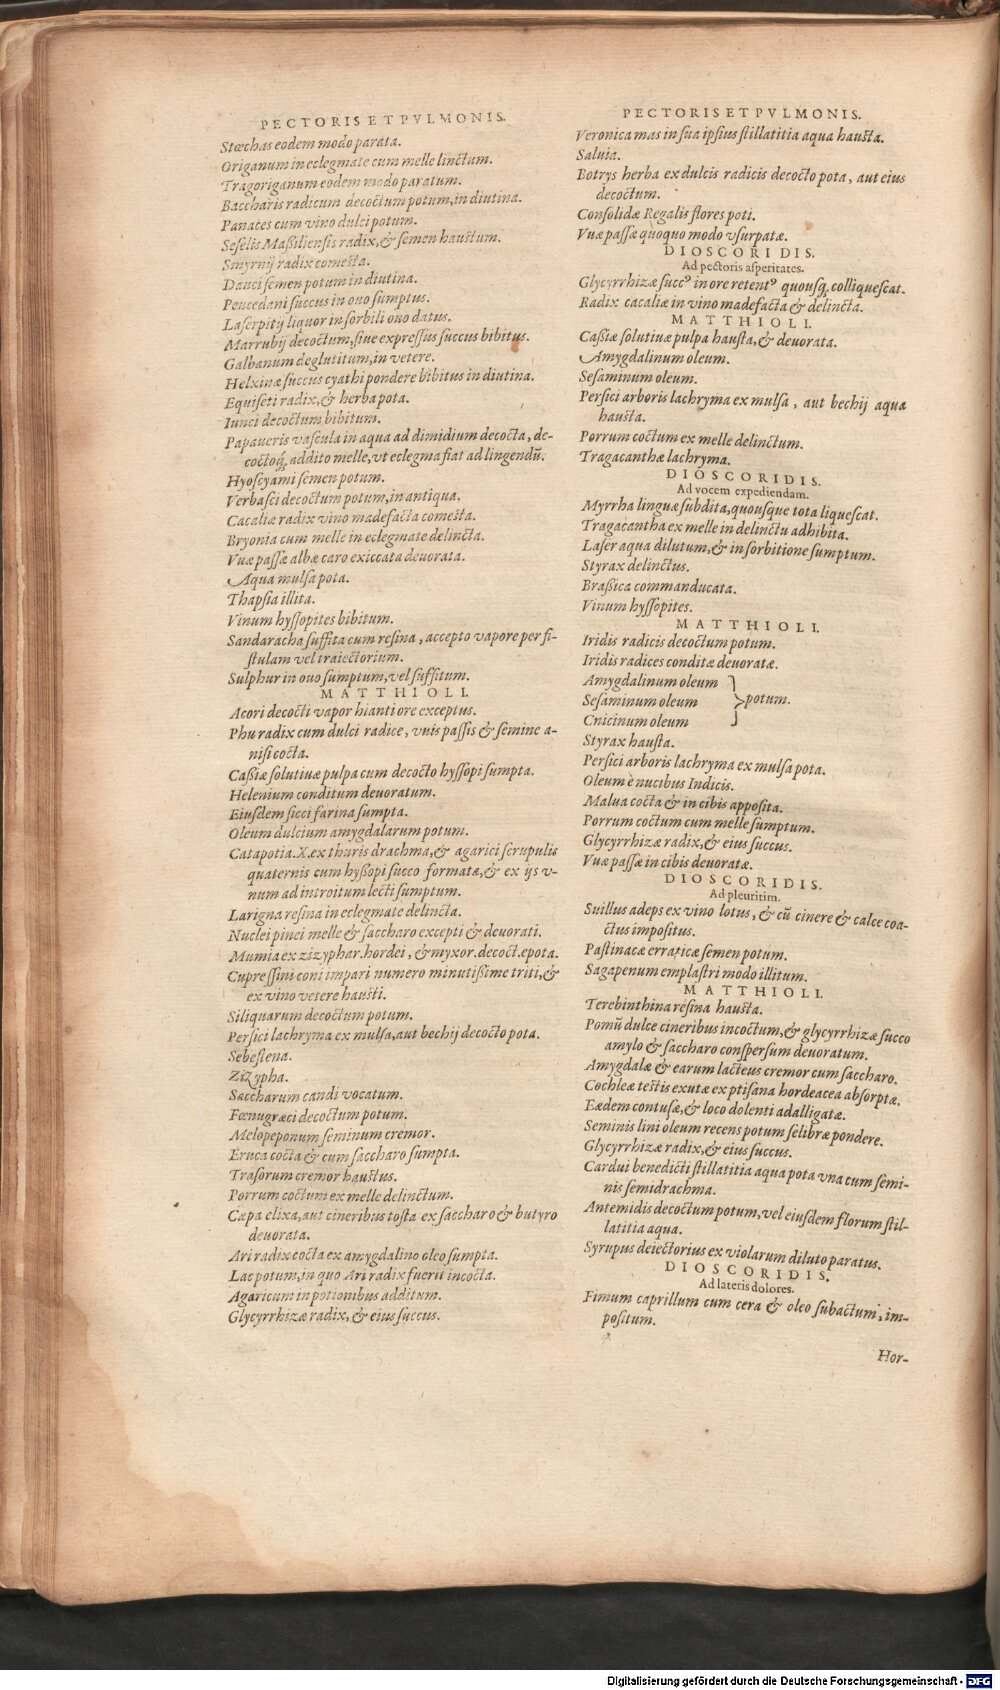 PECTORIS ET PVLMONIS.
Stœchas eodem modo parata.
Origanum in eclegmate cum melle linctum.
Tragoriganum eodem modo paratum.
Baccharis radicum decoctum potum, in diutina.
Panaces cum vino dulci potum.
Seselis Maßiliensis radix, & semen haustum.
Smyrnij radix comesta.
Dauci semen potum in diutina.
Peucedani succus in ouo sumptus.
Laserpitij liquor in sorbili ouo datus.
Marrubij decoctum, siue expressus succus bibitus.
Galbanum deglutitum, in vetere.
Helxinæ succus cyathi pondere bibitus in diutina.
Equiseti radix, & herba pota.
Iunci decoctum bibitum.
Papaueris vascula in aqua ad dimidium decocta, de-
coctoq́; addito melle, vt eclegma fiat ad lingendũ.
Hyoscyami semen potum.
Verbasci decoctum potum, in antiqua.
Cacaliæ radix vino madefacta comesta.
Bryonia cum melle in eclegmate delincta.
Vuæ passæ albæ caro exiccata deuorata.
Aqua mulsa pota.
Thapsia illita.
Vinum hyssopites bibitum.
Sandaracha suffita cum resina, accepto vapore per fi-
stulam vel traiectorium.
Sulphur in ouo sumptum, vel suffitum.
MATTHIOLI.
Acori decocti vapor hianti ore exceptus.
Phu radix cum dulci radice, vuis passis & semine a-
nisi cocta.
Caßiæ solutiuæ pulpa cum decocto hyssopi sumpta.
Helenium conditum deuoratum.
Eiusdem sicci farina sumpta.
Oleum dulcium amygdalarum potum.
Catapotia. X. ex thuris drachma, & agarici scrupulis
quaternis cum hyßopi succo formatæ, & ex ijs v-
num ad introitum lecti sumptum.
Larigna resina in eclegmate delincta.
Nuclei pinei melle & saccharo excepti & deuorati.
Mumia ex zizyphar. hordei, & myxor. decoct. epota.
Cupressini coni impari numero minutißime triti, &
ex vino vetere hausti.
Siliquarum decoctum potum.
Persici lachryma ex mulsa, aut bechij decocto pota.
Sebestena.
Zizypha.
Saccharum candi vocatum.
Fœnugræci decoctum potum.
Melopeponum seminum cremor.
Eruca cocta & cum saccharo sumpta.
Trasorum cremor haustus.
Porrum coctum ex melle delinctum.
Cæpa elixa, aut cineribus tosta ex saccharo & butyro
deuorata.
Ari radix cocta ex amygdalino oleo sumpta.
Lac potum, in quo Ari radix fuerit incocta.
Agaricum in potionibus additum.
Glycyrrhizæ radix, & eius succus.
PECTORIS ET PVLMONIS.
Veronica mas in sua ipsius stillatitia aqua hausta.
Saluia.
Botrys herba ex dulcis radicis decocto pota, aut eius
decoctum.
Consolidæ Regalis flores poti.
Vuæ passæ quoquo modo vsurpatæ.
DIOSCORIDIS.
Ad pectoris asperitates.
Glycyrrhizæ succꝰ in ore retentꝰ quousq; colliquescat.
Radix cacaliæ in vino madefacta & delincta.
MATTHIOLI.
Caßiæ solutiuæ pulpa hausta, & deuorata.
Amygdalinum oleum.
Sesaminum oleum.
Persici arboris lachryma ex mulsa, aut bechij aqua
hausta.
Porrum coctum ex melle delinctum.
Tragacanthæ lachryma.
DIOSCORIDIS.
Ad vocem expediendam.
Myrrha linguæ subdita, quousque tota liquescat.
Tragacantha ex melle in delinctu adhibita.
Laser aqua dilutum, & in sorbitione sumptum.
Styrax delinctus.
Braßica commanducata.
Vinum hyssopites.
MATTHIOLI.
Iridis radicis decoctum potum.
Iridis radices conditæ deuoratæ.
Amygdalinum oleum
Sesaminum oleum } potum.
Cnicinum oleum
Styrax hausta.
Persici arboris lachryma ex mulsa pota.
Oleum è nucibus Indicis.
Malua cocta & in cibis apposita.
Porrum coctum cum melle sumptum.
Glycyrrhizæ radix, & eius succus.
Vuæ passæ in cibis deuoratæ.
DIOSCORIDIS.
Ad pleuritim.
Suillus adeps ex vino lotus, & cũ cinere & calce coa-
ctus impositus.
Pastinacæ erraticæ semen potum.
Sagapenum emplastri modo illitum.
MATTHIOLI.
Terebinthina resina hausta.
Pomũ dulce cineribus incoctum, & glycyrrhizæ succo
amylo & saccharo conspersum deuoratum.
Amygdalæ & earum lacteus cremor cum saccharo.
Cochleæ testis exutæ ex ptisana hordeacea absorptæ.
Eædem contusæ, & loco dolenti adalligatæ.
Seminis lini oleum recens potum selibræ pondere.
Glycyrrhizæ radix, & eius succus.
Cardui benedicti stillatitia aqua pota vna cum semi-
nis semidrachma.
Antemidis decoctum potum, vel eiusdem florum stil-
latitia aqua.
Syrupus deiectorius ex violarum diluto paratus.
DIOSCORIDIS.
Ad lateris dolores.
Fimum caprillum cum cera & oleo subactum, im-
positum.
Hor-
Digitalisierung gefördert durch die Deutsche Forschungsgemeinschaft - DFG